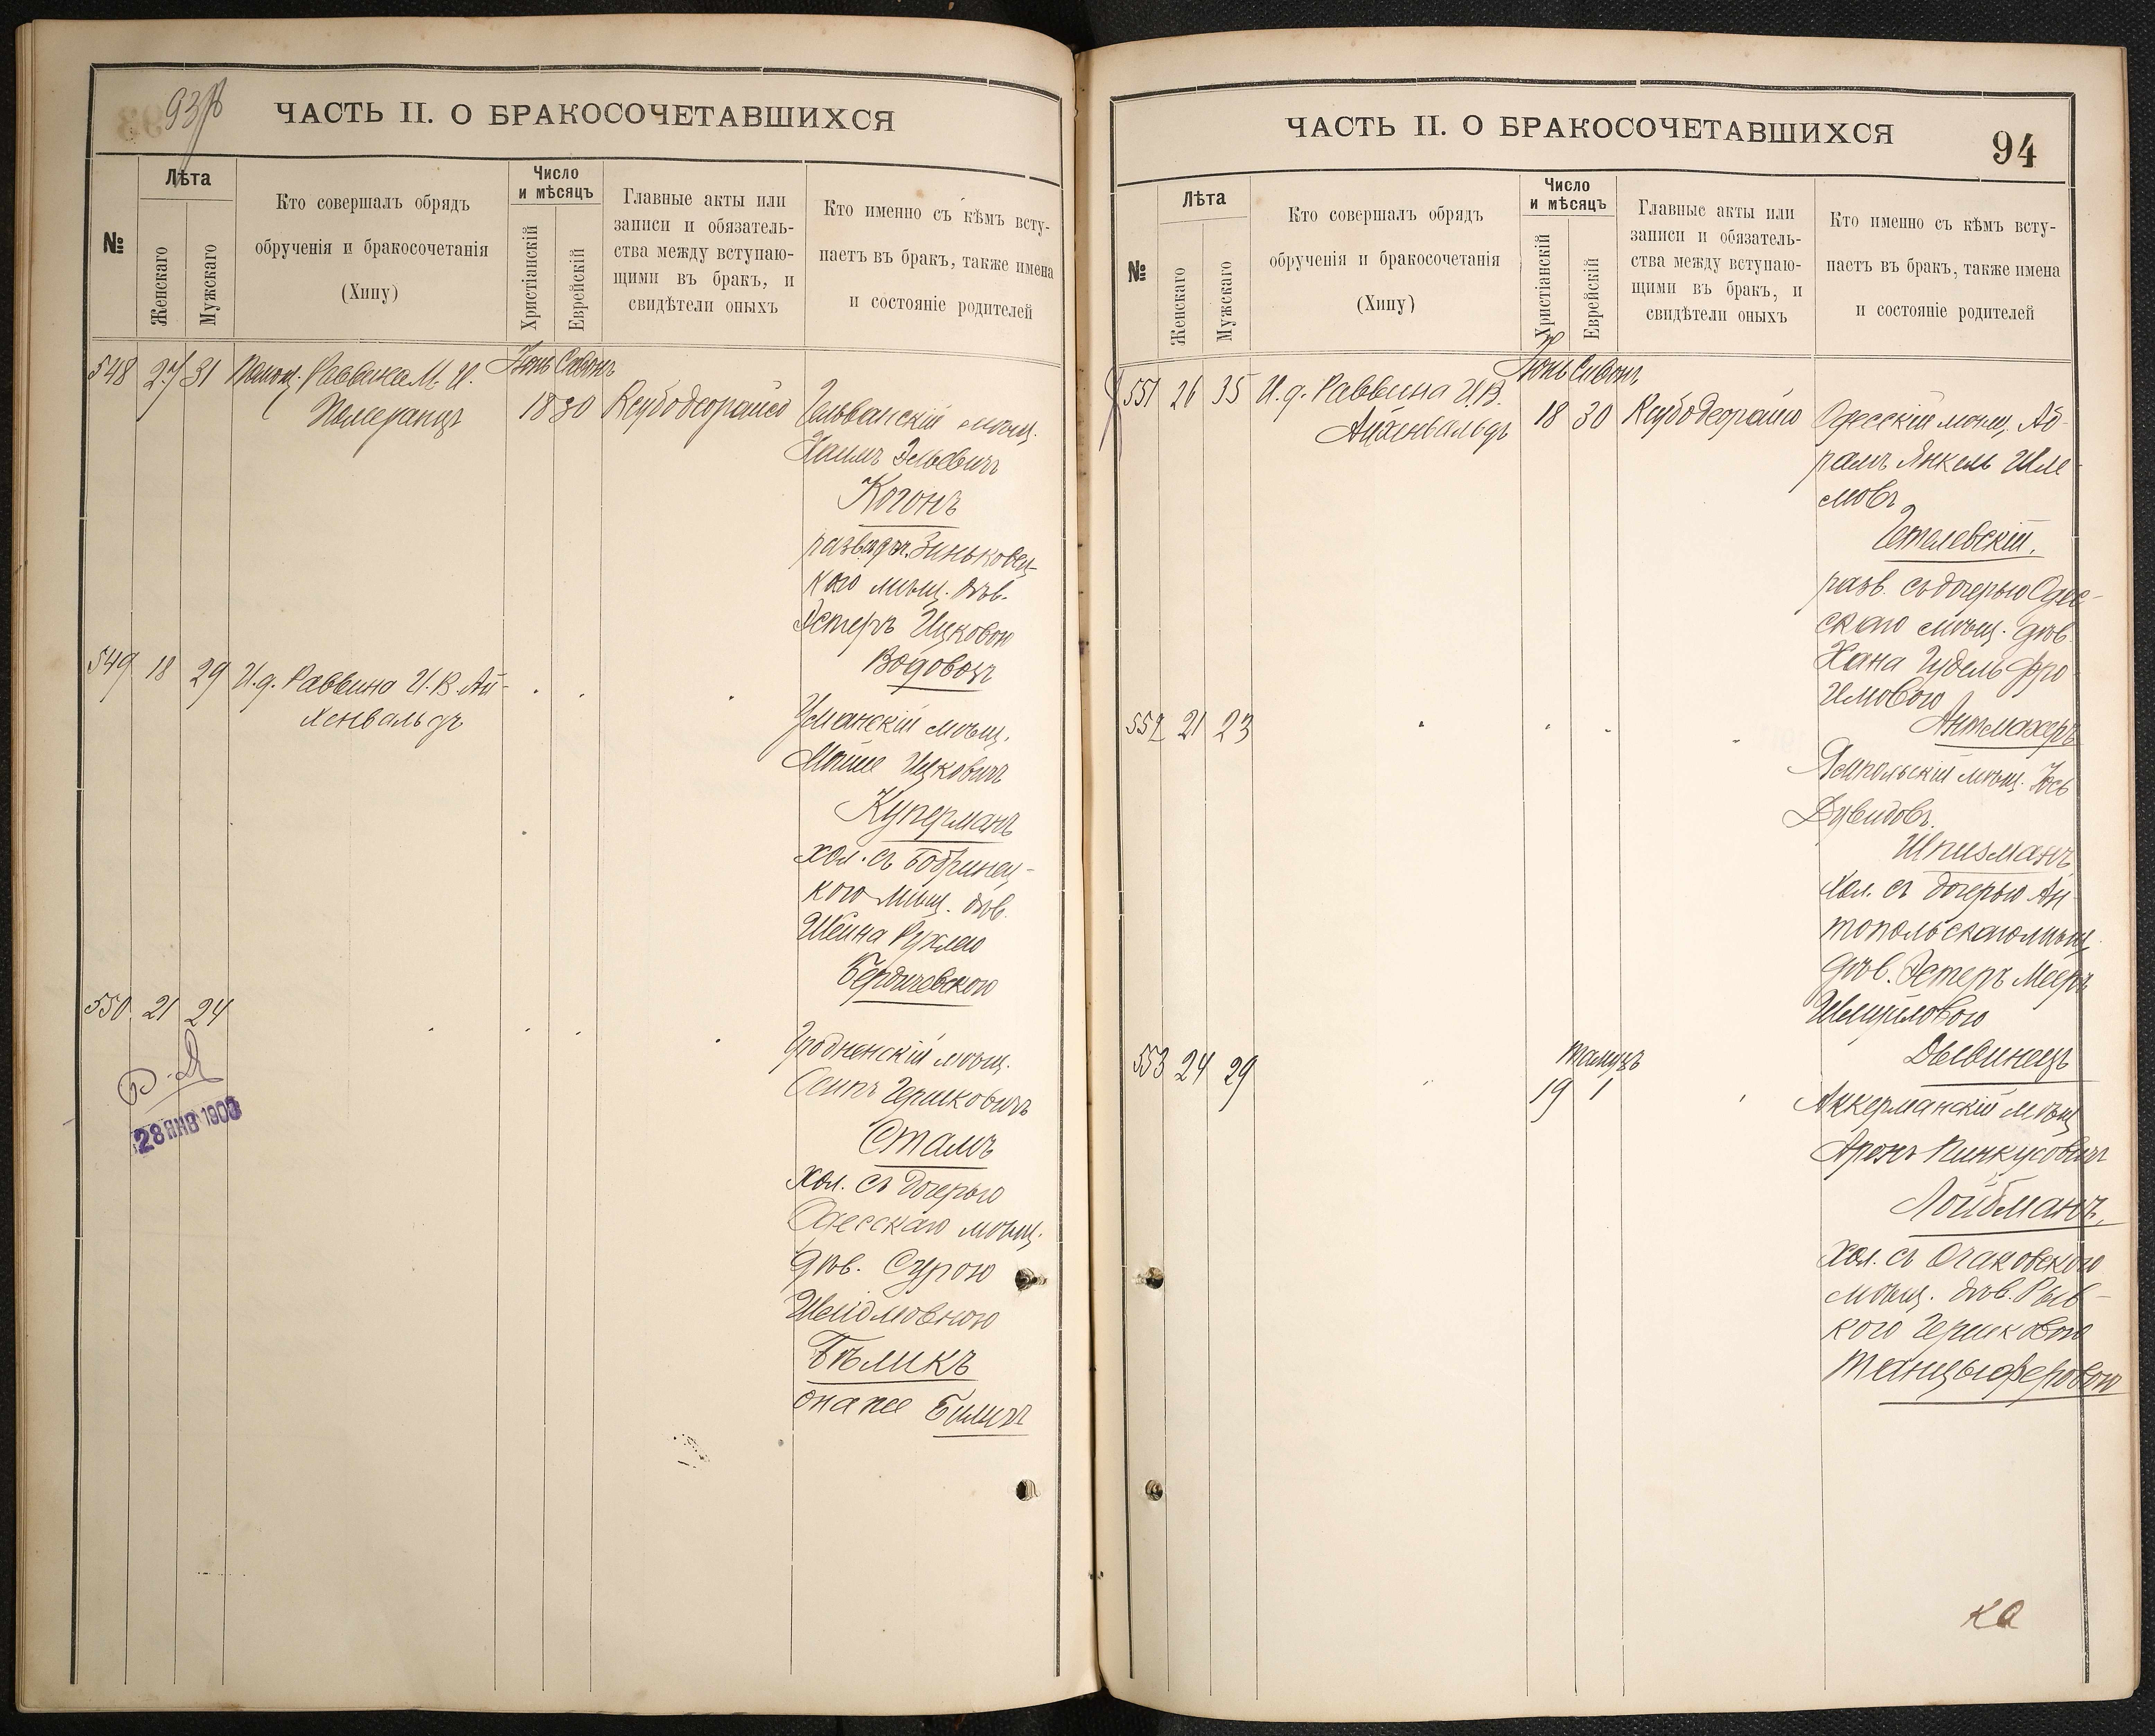 93
ЧАСТЬ II. О БРАКОСОЧЕТАВШИХСЯ
№
Лѣта
Женскаго
Мужскаго
Кто совершалъ обрядъ
обрученія и бракосочетанія
(Хипу)
Число
и мѣсяцъ
Христіанскій
Еврейскій
Главные акты или
записи и обязатель-
ства между вступаю-
щими въ бракъ, и
свидѣтели оныхъ
Кто именно съ кѣмъ всту-
паетъ въ бракъ, также имена
и состояніе родителей
548 27 31 Помощ. Раввина М. И.
Померанцъ
Іюнь Сивонъ
18 30
мѣщ.
Хаимъ Эльевичъ
Когонъ
Зиньковец-
каго мѣщ. дѣв.
Эстеръ Ицковою
Водовозъ
549 18 29 И.д. Раввина И. В. Ай-
хенвальдъ
Уманскій мѣщ.
Мойше Ицковичъ
Куперманъ
хол. съ Бобринец-
кою мѣщ. дѣв.
Шейна Рухлею
Бердичевскою
550 21 24
Гродненскій мѣщ.
Осипъ Гершковичъ
Стамъ
хол. съ дочерью
Одесскаго мѣщ.
дѣв. Сурою
Бѣликъ
она же Биличъ
28 ЯНВ 1900
ЧАСТЬ II. О БРАКОСОЧЕТАВШИХСЯ
94
№
Лѣта
Женскаго
Мужскаго
Кто совершалъ обрядъ
обрученія и бракосочетанія
(Хипу)
Число
и мѣсяцъ
Христіанскій
Еврейскій
Главные акты или
записи и обязатель-
ства между вступаю-
щими въ бракъ, и
свидѣтели оныхъ
Кто именно съ кѣмъ всту-
паетъ въ бракъ, также имена
и состояніе родителей
551 26 35 И.д. Раввина И.В.
Айхенвальдъ
Іюнь Сивонъ
18 30
Одесскій мѣщ. Аб-
рамъ Янкель Шле-
мовъ
разв. съ дочерью Одес-
скаго мѣщ. дѣв.
Хана Гудель Фро-
имовою
Антмахеръ
552 21 23
Ямпольскій мѣщ. Іось
Давидовъ
Шпизманъ
хол. съ дочерью Ан-
топольскаго мѣщ.
дѣв. Эстеръ Мееръ
Шмуйловою
553 24 29
тамузъ
19 1
Аккерманскій мѣщ.
Аронъ Пинкусовичъ
Лойбманъ
хол. съ Очаковскою
мѣщ. дѣв. Рыв-
кою Гершковою
Танцыферовою